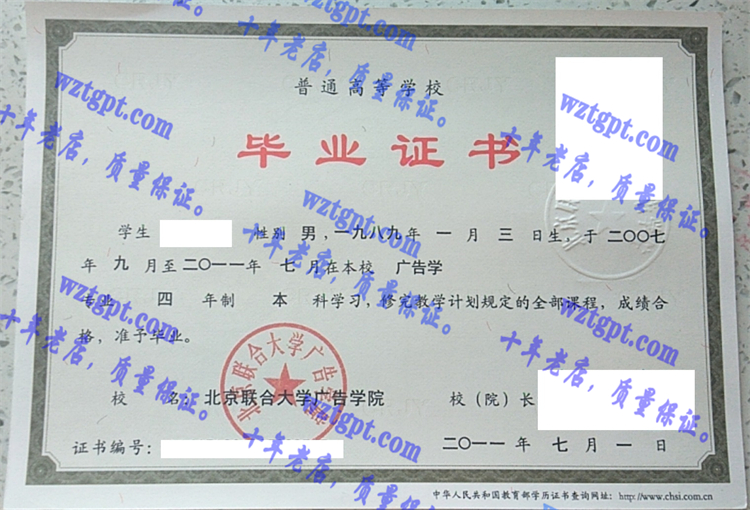 普通高等学校
毕业证书
学生 性别 男，一九八九年 一 月 三 日生，于 二〇〇七
年 九 月至 二〇一一年 七 月在本校 广告学
专业 四 年制 本 科学习，修完教学计划规定的全部课程，成绩合
格，准予毕业。
北京联合大学广告学院
校 名：北京联合大学广告学院 校（院）长
证书编号： 二〇一一 年 七 月 一 日
中华人民共和国教育部学历证书查询网址：http://www.chsi.com.cn
wztgpt.com
十年老店，质量保证。
wztgpt.com
十年老店，质量保证。
wztgpt.com
十年老店，质量保证。
wztgpt.com
十年老店，质量保证。
wztgpt.com
十年老店，质量保证。
wztgpt.com
十年老店，质量保证。
十年老店，质量保证。
十年老店，质量保证。